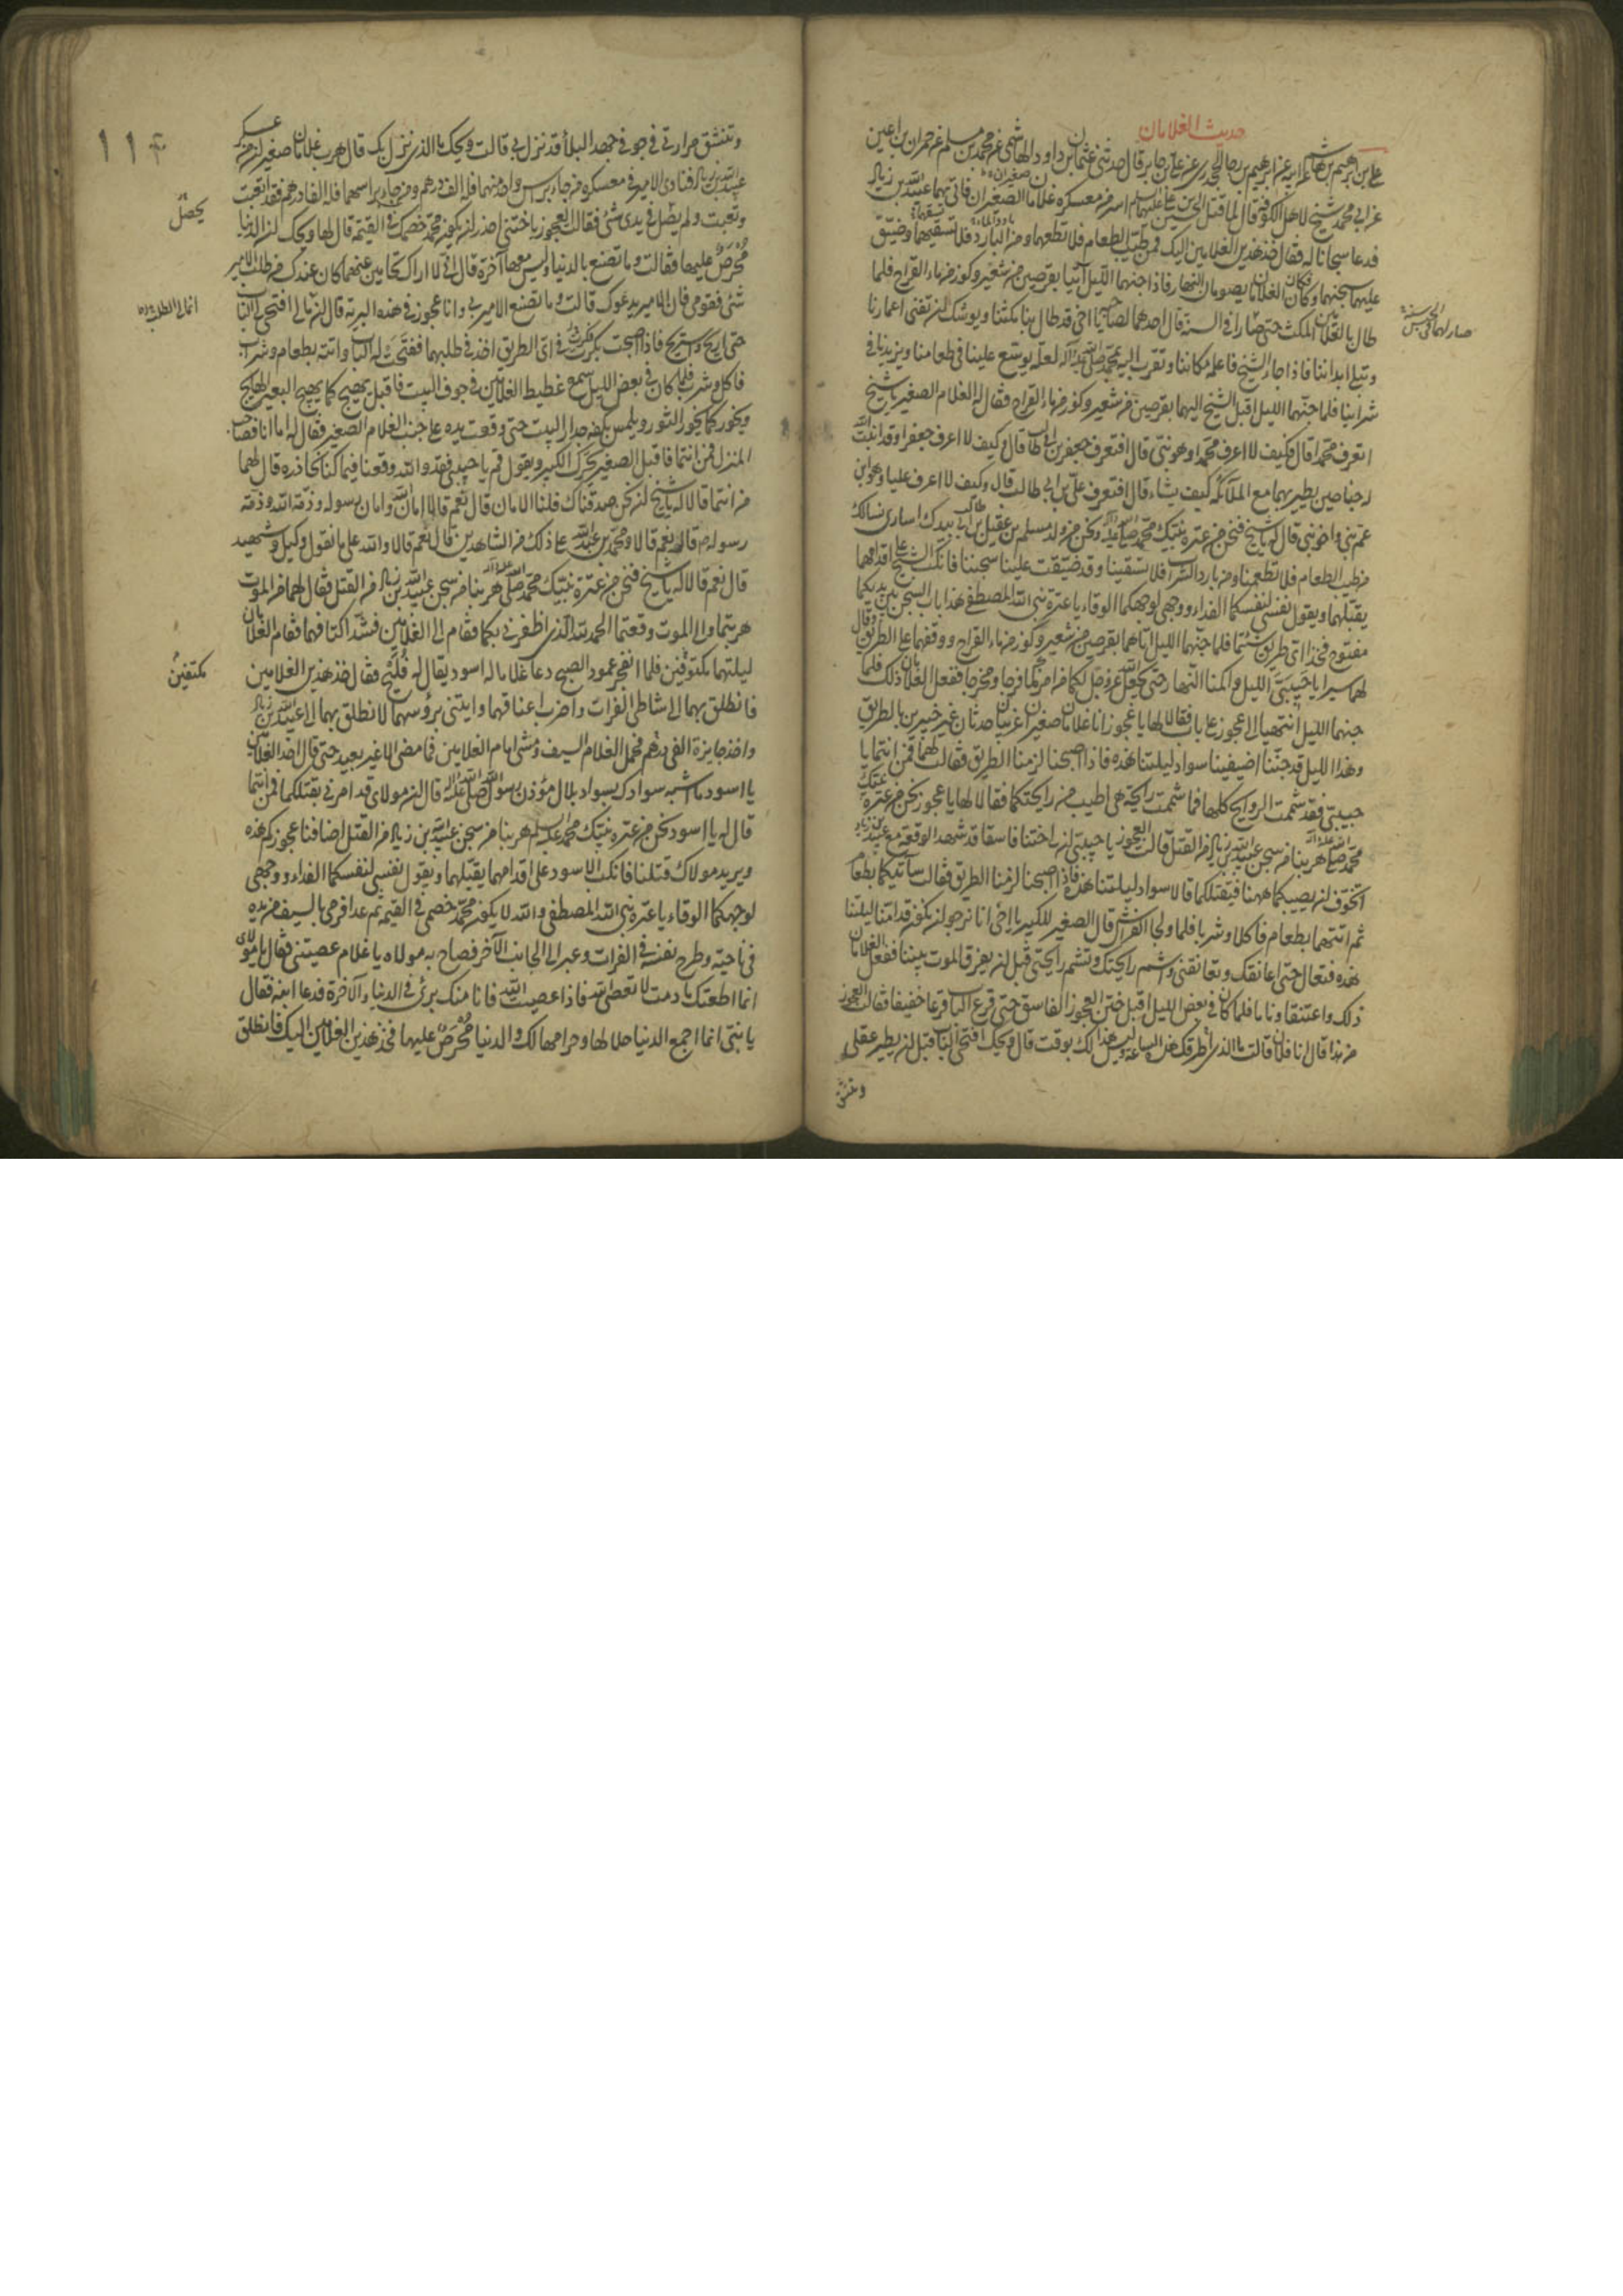 حديث الغلامان
علي بن ابرهيم بن هاشم عن ابيه عن ابرهيم بن رجا الجحدري عن علي بن جابر قال حدثني عثمان بن داود الهاشمي عن محمد بن مسلم عن حمران بن اعين
عن ابي محمد شيخ لاهل الكوفة قال لما قتل الحسين بن علي عليهما السلام اسر من معسكره غلامان صغيران فاتي بهما عبيد الله بن زياد
فدعا سجانا له فقال خذ هذين الغلامين اليك فمن طيب الطعام فلا تطعمهما ومن البارد فلا تسقيهما وضيق
عليهما سجنهما وكان الغلامان يصومان النهار فاذا جنهما الليل اتيا بقرصين من شعير وكوز من ماء القراح فلما
طال بالغلامين المكث حتى صارا في السنة قال احدهما لصاحبه يا اخي قد طال بنا مكثنا ويوشك ان تفنى اعمارنا
وتبلى ابداننا فاذا جاء الشيخ فاعلمه مكاننا وتقرب اليه بمحمد صلى الله عليه وآله لعله يوسع علينا في طعامنا ويزيدنا في
شرابنا فلما جنهما الليل اقبل الشيخ اليهما بقرصين من شعير وكوز من ماء القراح فقال له الغلام الصغير يا شيخ
اتعرف محمدا قال فكيف لا اعرف محمدا وهو نبيي قال افتعرف جعفر بن ابي طالب قال وكيف لا اعرف جعفرا وقد انبت الله
له جناحين يطير بهما مع الملائكة كيف يشاء قال افتعرف علي بن ابي طالب قال وكيف لا اعرف عليا وهو ابن
عم نبيي واخو نبيي قال له يا شيخ فنحن من عترة نبيك محمد صلى الله عليه وآله ونحن من ولد مسلم بن عقيل بن ابي طالب بيدك اسارى نسالك
من طيب الطعام فلا تطعمنا ومن بارد الشراب فلا تسقينا وقد ضيقت علينا سجننا فانكب الشيخ على اقدامهما
يقبلهما ويقول نفسي لنفسكما الفداء ووجهي لوجهكما الوقاء يا عترة نبي الله المصطفى هذا باب السجن بين يديكما
مفتوح فخذا اي طريق شئتما فلما جنهما الليل اتاهما بقرصين من شعير وكوز من ماء القراح ووقفهما على الطريق وقال
لهما سيرا يا حبيبي الليل واكمنا النهار حتى يجعل الله عز وجل لكما من امركما فرجا ومخرجا ففعل الغلامان ذلك فلما
جنهما الليل انتهيا الى عجوز على باب فقالا لها يا عجوز انا غلامان صغيران غريبان حدثان غير خبيرين بالطريق
وهذا الليل قد جننا اضيفينا سواد ليلتنا هذه فاذا اصبحنا لزمنا الطريق فقالت لهما فمن انتما يا
حبيبي فقد شممت الروايح كلها فما شممت رايحة هي اطيب من رايحتكما فقالا لها يا عجوز نحن من عترة نبيك
محمد صلى الله عليه وآله هربنا من سجن عبيد الله بن زياد من القتل قالت العجوز يا حبيبي ان لي ختنا فاسقا قد شهد الوقعة مع عبيد الله بن زياد
اتخوف ان يصيبكما ههنا فيقتلكما قالا سواد ليلتنا هذه فاذا اصبحنا لزمنا الطريق فقالت سآتيكما بطعام
ثم اتتهما بطعام فاكلا وشربا فلما ولجا الفراش قال الصغير للكبير يا اخي انا نرجو ان نكون قد امنا ليلتنا
هذه فتعال حتى اعانقك وتعانقني واشم رايحتك وتشم رايحتي قبل ان يفرق الموت بيننا ففعل الغلامان
ذلك واعتنقا وناما فلما كان في بعض الليل اقبل ختن العجوز الفاسق حتى قرع الباب قرعا خفيفا فقالت العجوز
من هذا قال انا فلان قالت ما الذي اطرقك هذه الساعة وليس هذا لك بوقت قال ويحك افتحي الباب قبل ان يطير عقلي
وتنشق
وتنشق مرارتي في جوفي جهد البلاء قد نزل بي قالت ويحك ما الذي نزل بك قال هرب غلامان صغيران من عسكر
عبيد الله بن زياد فنادى الامير في معسكره من جاء براس واحد منهما فله الف درهم ومن جاء براسهما فله الفا درهم فقد اتعبت
وتعبت ولم يصل في يدي شئ فقالت العجوز يا ختني احذر ان يكون محمد خصمك في القيمة قال لها ويحك ان الدنيا
محرص عليها فقالت وما تصنع بالدنيا وليس معها آخرة قال اني لا اراك تحامين عنهما كان عندك من طلب الامير
شئ فقومي فان الامير يدعوك قالت وما يصنع الامير بي وانا عجوز في هذه البرية قال انما لي افتحي لي الباب
حتى اريح واستريح فاذا اصبحت بكرت في اي الطريق اخذ في طلبهما ففتحت له الباب واتته بطعام وشراب
فاكل وشرب فلما كان في بعض الليل سمع غطيط الغلامين في جوف البيت فاقبل يهيج كما يهيج البعير الهايج
ويخور كما يخور الثور ويلمس بكفه جدار البيت حتى وقعت يده على جنب الغلام الصغير فقال له اما انا فصاحب
المنزل فمن انتما فاقبل الصغير يحرك الكبير ويقول قم يا حبيبي فقد والله وقعنا فيما كنا نحاذره قال لهما
من انتما قالا له يا شيخ ان نحن صدقناك فلنا الامان قال نعم قالا امان الله وامان رسوله وذمة الله وذمة
رسوله قال نعم قالا ومحمد بن عبد الله على ذلك من الشاهدين قال نعم قالا والله على ما نقول وكيل وشهيد
قال نعم قالا له يا شيخ فنحن من عترة نبيك محمد صلى الله عليه وآله هربنا من سجن عبيد الله بن زياد من القتل فقال لهما من الموت
هربتما والى الموت وقعتما الحمد لله الذي اظفرني بكما فقام الى الغلامين فشد اكتافهما فقام الغلامان
ليلتهما مكتوفين فلما انفجر عمود الصبح دعا غلاما له اسود يقال له فليح فقال خذ هذين الغلامين
فانطلق بهما الى شاطئ الفرات واضرب اعناقهما وايتني برؤسهما لانطلق بهما الى عبيد الله بن زياد
واخذ جايزة الفي درهم فحمل الغلام السيف ومشى امام الغلامين فما مضى الا غير بعيد حتى قال احد الغلامين
يا اسود ما اشبه سوادك بسواد بلال مؤذن رسول الله صلى الله عليه وآله قال ان مولاي قد امرني بقتلكما فمن انتما
قال له يا اسود نحن من عترة نبيك محمد عليه السلام هربنا من سجن عبيد الله بن زياد من القتل اضافتنا عجوزكم هذه
ويريد مولاك قتلنا فانكب الاسود على اقدامهما يقبلهما ويقول نفسي لنفسكما الفداء ووجهي
لوجهكما الوقاء يا عترة نبي الله المصطفى والله لا يكون محمد خصمي في القيمة ثم عدا فرمى بالسيف من يده
في ناحية وطرح نفسه في الفرات وعبر الى الجانب الآخر فصاح به مولاه يا غلام عصيتني فقال يا مولاي
انما اطعتك ما دمت لا تعصي الله فاذا عصيت الله فانا منك برئ في الدنيا والآخرة فدعا ابنه فقال
يا بني انما اجمع الدنيا حلالها وحرامها لك والدنيا محرص عليها فخذ هذين الغلامين اليك فانطلق
يحصل
مكتفين